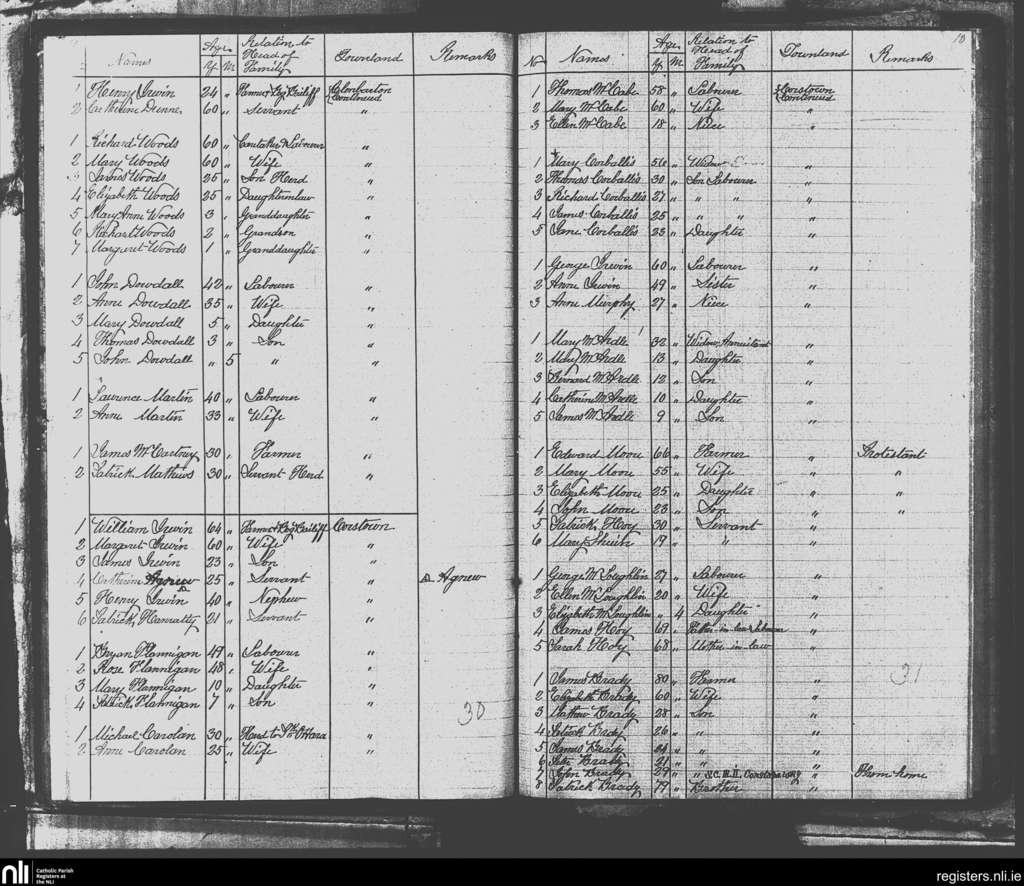 Names Age Relation to Head of Family Townland Remarks
Y M
1 Henry Irwin 24 " Farmer & Bailiff Clonbarton Continued
2 Catherine 60 " Servant "
1 Richard Woods 60 " Caretaker & Labourer "
2 Mary Woods 60 " Wife "
3 James Woods 25 " Son Herd "
4 Elizabeth Woods 25 " Daughterinlaw "
5 Mary Anne Woods 3 " Granddaughter "
6 Richard Woods 2 " Grandson "
7 Margaret Woods 1 " Granddaughter "
1 John Dowdall 42 " Labourer "
2 Anne Dowdall 35 " Wife "
3 Mary Dowdall 5 " Daughter "
4 Thomas Dowdall 3 " Son "
5 John Dowdall " 5 " "
1 Laurence Martin 40 " Labourer "
2 Anne Martin 33 " Wife "
1 James McCartney 30 " Farmer "
2 Patrick Mathews 30 " Servant Herd "
1 William Irwin 64 " Farmer & Bailiff Corstown
2 Margaret Irwin 60 " Wife "
3 James Irwin 23 " Son "
4 Catherine Agnew 25 " Servant " Agnew
5 Henry Irwin 40 " Nephew "
6 Patrick Hanratty 21 " Servant "
1 Bryan Flannigan 49 " Labourer "
2 Rose Flannigan 48 " Wife "
3 Mary Flannigan 10 " Daughter "
4 Patrick Flannigan 7 " Son "
30
1 Michael Carolan 30 " Herd to O'Hara "
2 Anne Carolan 25 " Wife "
10
No Names Age Relation to Head of Family Townland Remarks
Y M
1 Thomas McCabe 58 " Labourer Corstown Continued
2 Mary McCabe 60 " Wife "
3 Ellen McCabe 18 " Niece "
1 Mary Corballis 56 " Widow "
2 Thomas Corballis 30 " Son Labourer "
3 Richard Corballis 27 " " " "
4 James Corballis 25 " " " "
5 Jane Corballis 23 " Daughter "
1 George Irwin 60 " Labourer "
2 Anne Irwin 49 " Sister "
3 Anne Murphy 27 " Niece "
1 Mary McArdle 32 " Widow, "
2 Mary McArdle 13 " Daughter "
3 Bernard McArdle 12 " Son "
4 Catherine McArdle 10 " Daughter "
5 James McArdle 9 " Son "
1 Edward Moore 66 " Farmer " Protestant
2 Mary Moore 55 " Wife " "
3 Elizabeth Moore 25 " Daughter " "
4 John Moore 23 " Son " "
5 Patrick Hoy 30 " Servant "
6 Mary 19 " " "
1 George McLoughlin 27 " Labourer "
2 Ellen McLoughlin 20 " Wife "
3 Elizabeth McLoughlin " 4 Daughter "
4 James Hoy 69 " Father-in-law Labourer "
5 Sarah Hoy 68 " Mother-in-law "
31
1 James Brady 80 " Farmer "
2 Elizabeth Brady 60 " Wife "
3 Mathew Brady 28 " Son "
4 Patrick Brady 26 " " "
5 James Brady 24 " " "
6 Peter Brady 21 " " "
7 John Brady 29 " " " From home
8 Patrick Brady 79 " Brother "
nli Catholic Parish Registers at the NLI
registers.nli.ie